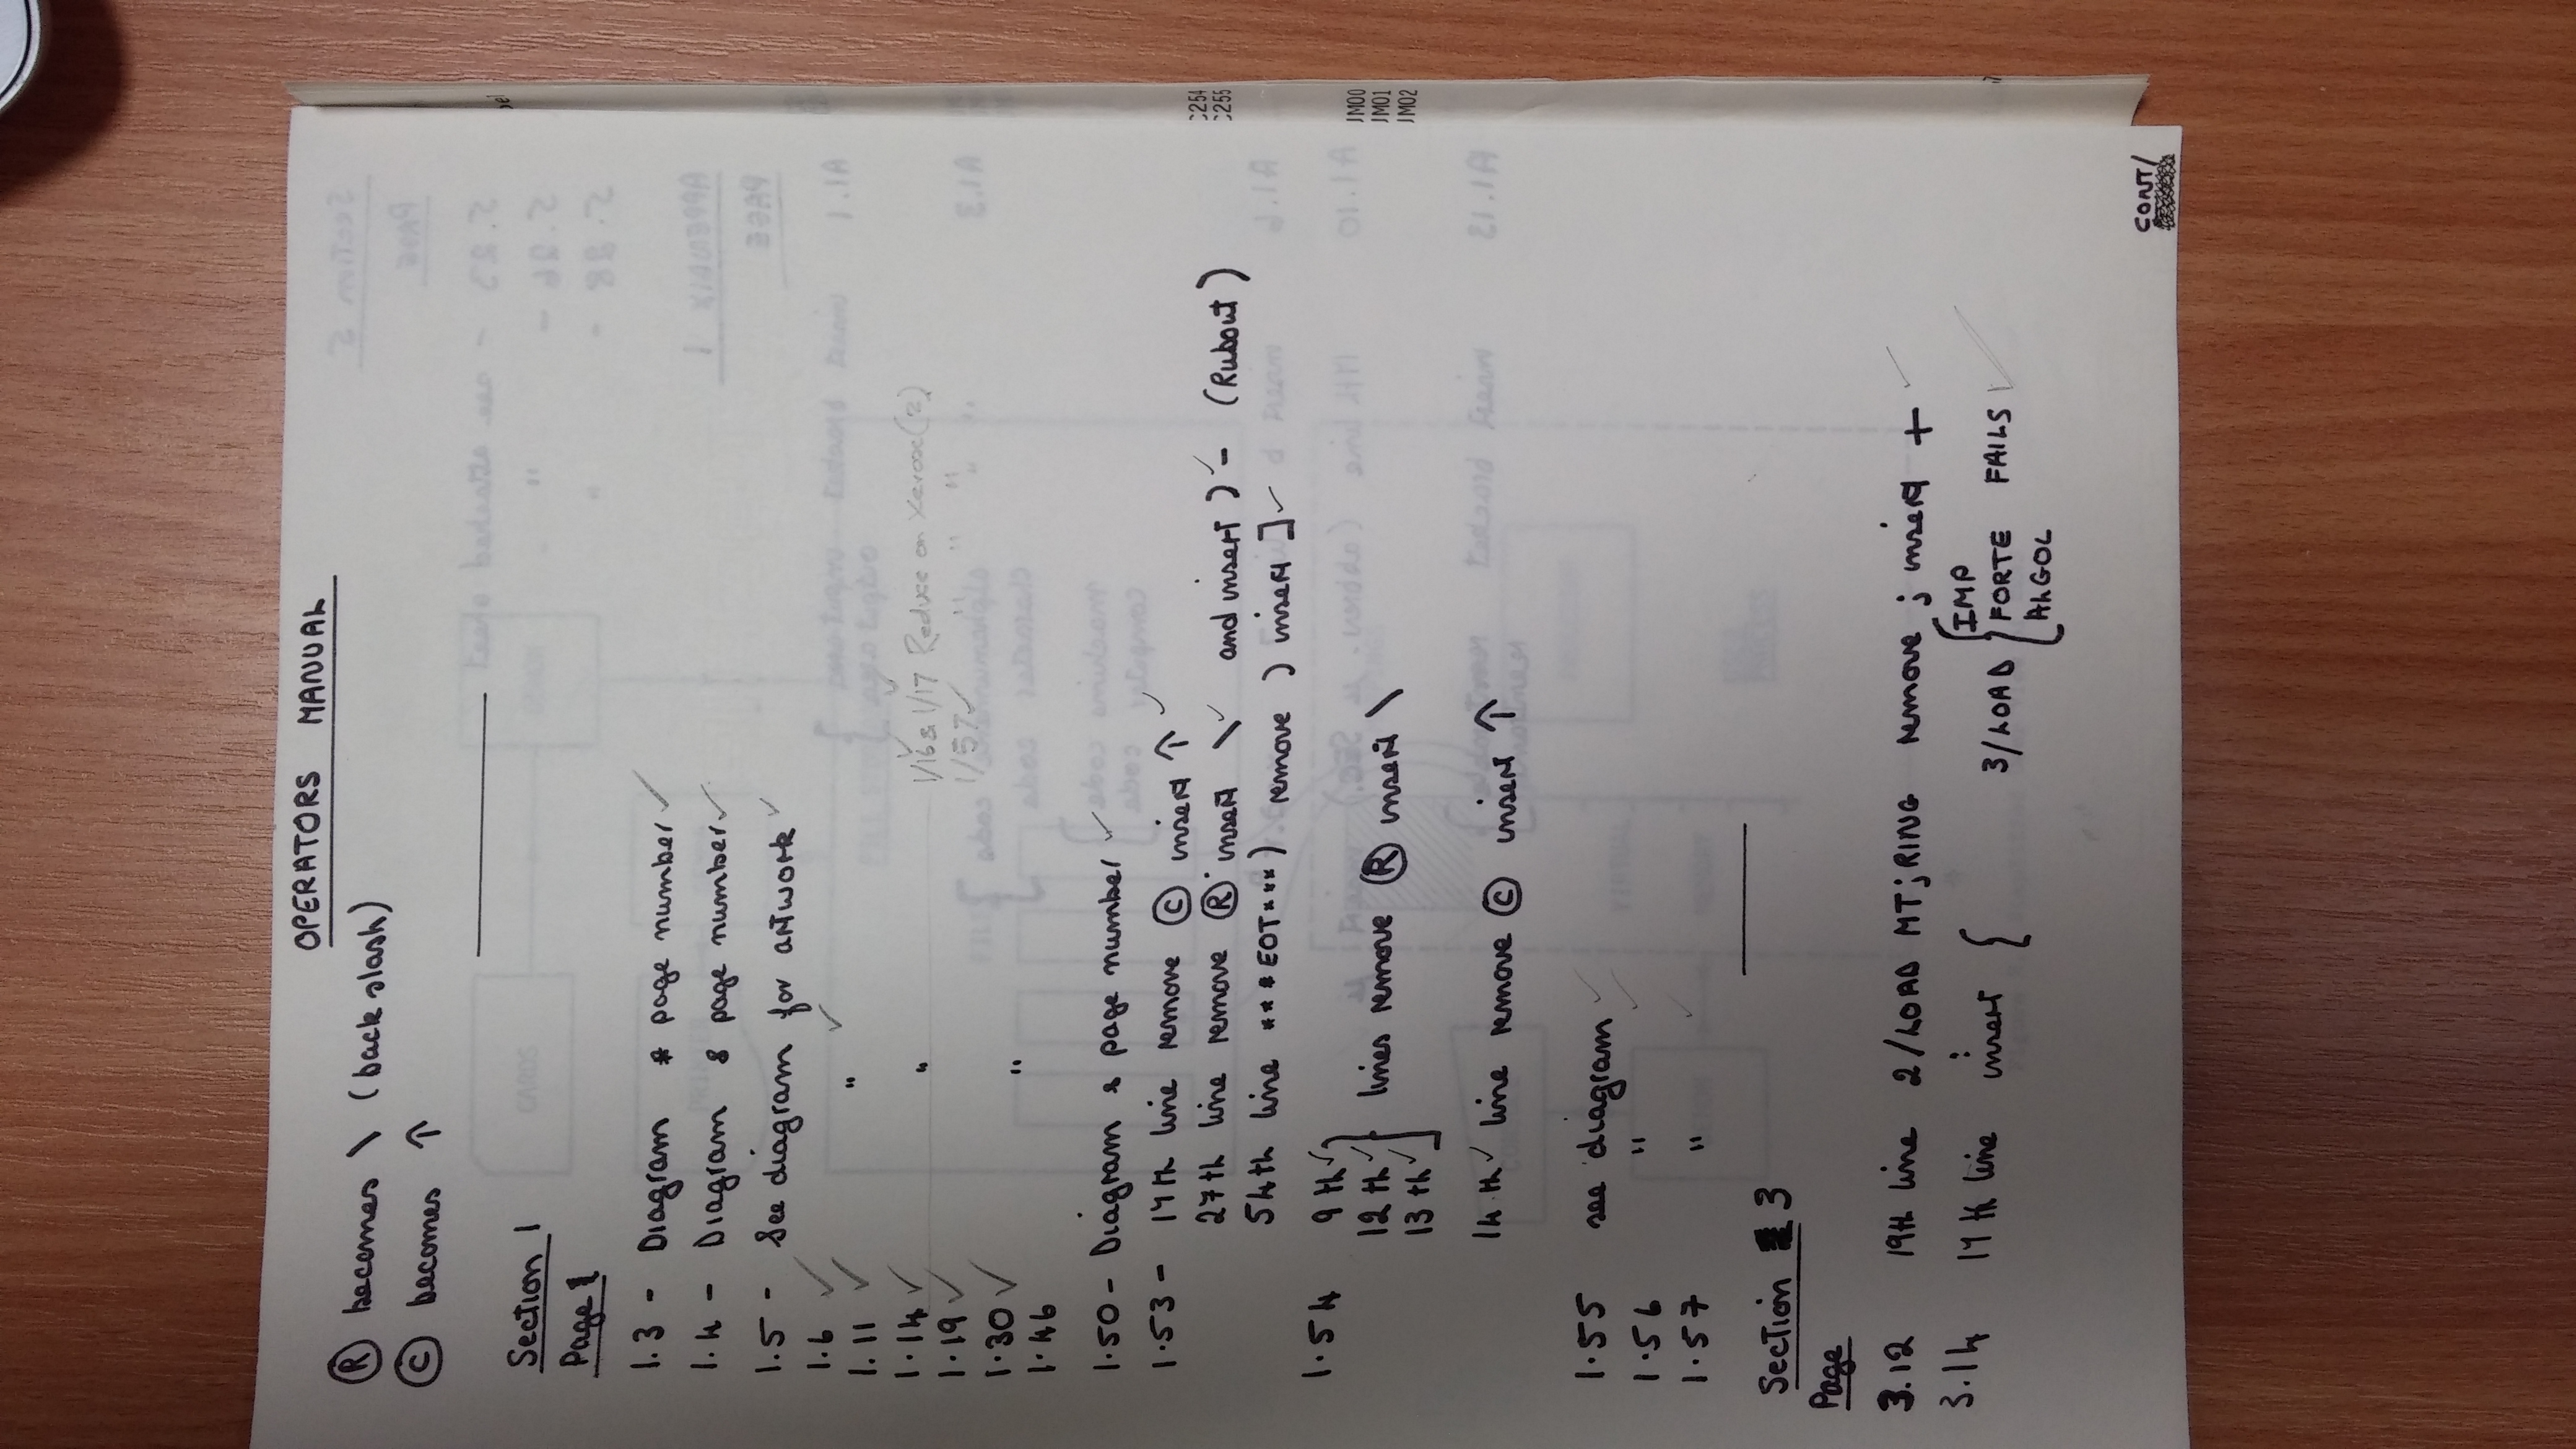 OPERATORS MANUAL
Ⓡ becomes \ (back slash)
Ⓒ becomes ↑
Section 1
Page 1
1.3 - Diagram & page number ✓
1.4 - Diagram & page number ✓
1.5 - See diagram for artwork ✓
1.6 ✓
1.11 ✓ " ✓
1.14 ✓ " 1/16 & 1/17 Reduce on Xerox (2)
1.19 ✓ 1/57 ✓ " " " "
1.30 ✓ "
1.46
1.50 - Diagram & page number ✓
1.53 - 14th line remove Ⓒ insert ↑ ✓
27th line remove Ⓡ insert \ ✓ and insert ) ✓ - (Rubout)
54th line ***EOT***) remove ) insert ] ✓
1.54 9th ✓
12th ✓ } lines remove Ⓡ insert \
13th ✓
14th ✓ line remove Ⓒ insert ↑
1.55 see diagram ✓
1.56 " ✓
1.57 " ✓
Section 3
Page
3.12 19th line 2/LOAD MT;RING remove ; insert + ✓
3.14 14th line insert { 3/LOAD { IMP
FORTE FAILS ✓
ALGOL
CONT/
C254
C255
JM00
JM01
JM02